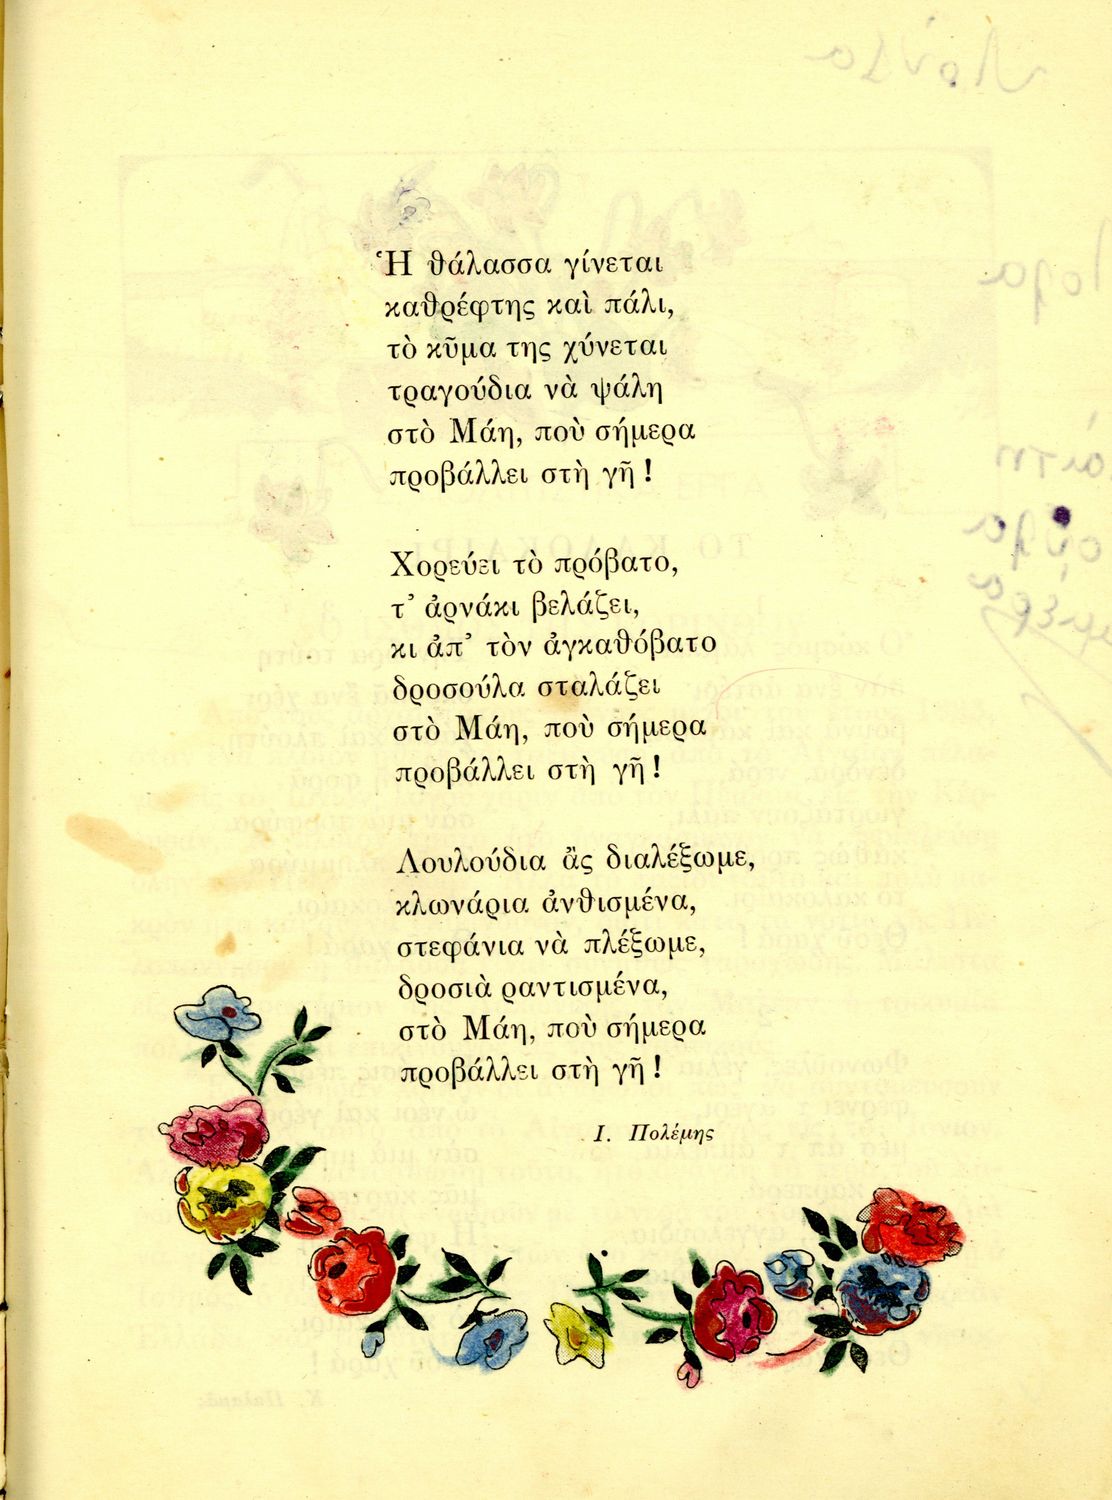 Ἡ θάλασσα γίνεται
καθρέφτης καὶ πάλι,
τὸ κῦμα της χύνεται
τραγούδια νὰ ψάλη
στὸ Μάη, ποὺ σήμερα
προβάλλει στὴ γῆ !
Χορεύει τὸ πρόβατο,
τ᾿ ἀρνάκι βελάζει,
κι ἀπ᾿ τὸν ἀγκαθόβατο
δροσούλα σταλάζει
στὸ Μάη, ποὺ σήμερα
προβάλλει στὴ γῆ !
Λουλούδια ἂς διαλέξωμε,
κλωνάρια ἀνθισμένα,
στεφάνια νὰ πλέξωμε,
δροσιὰ ραντισμένα,
στὸ Μάη, ποὺ σήμερα
προβάλλει στὴ γῆ !
Ι. Πολέμης